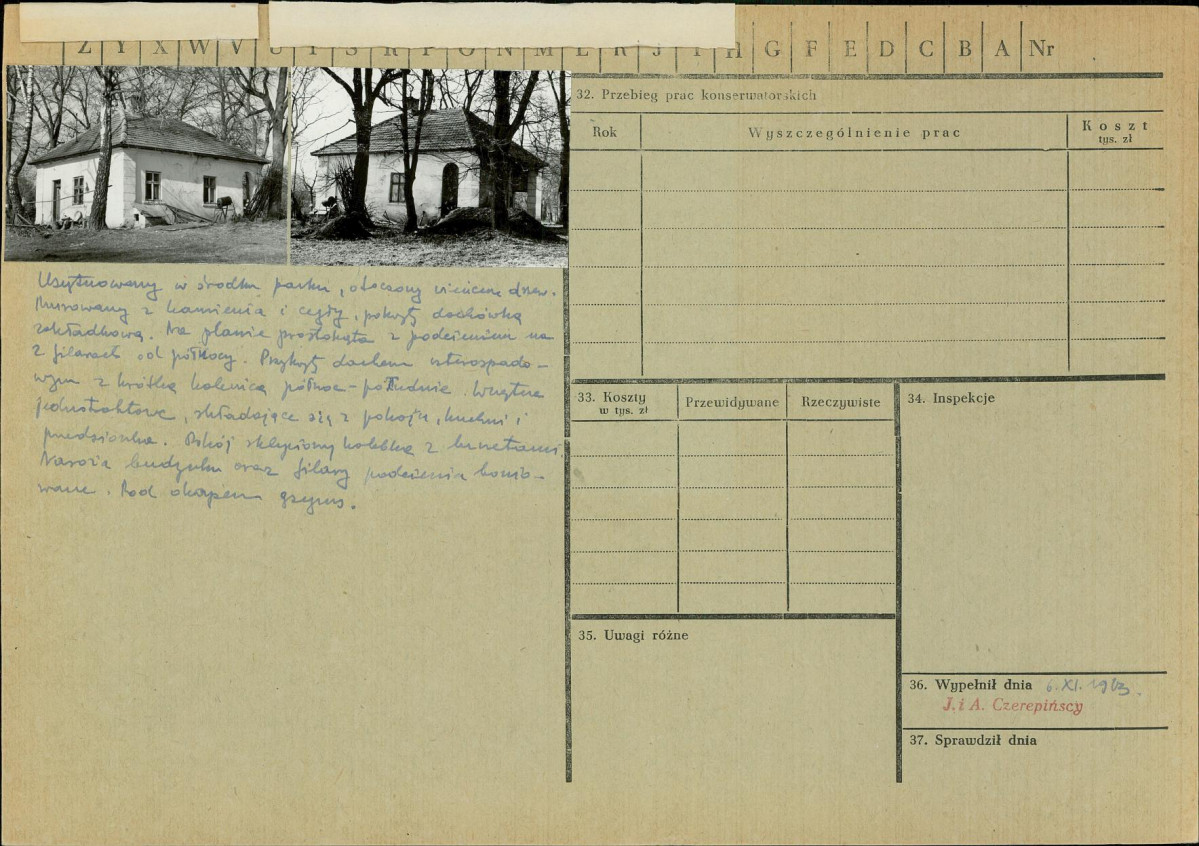 Z Y X W V U T S R P O N M Ł R J I H G F E D C B A Nr
Usytuowany w środku parku, otoczony wieńcem drzew.
Murowany z kamienia i cegły, pokryty dachówką
zakładkową. Na planie prostokąta z podcieniem na
2 filarach od północy. Przykryty dachem czterospado-
wym z krótką kalenicą północ-południe. Wnętrze
jednotraktowe, składające się z pokoju, kuchni i
przedsionka. Pokój sklepiony kolebką z lunetami.
Naroża budynku oraz filary podcienia bonio-
wane. Pod okapem gzyms.
32. Przebieg prac konserwatorskich
Rok Wyszczególnienie prac Koszt
tys. zł
33. Koszty
w tys. zł
Przewidywane Rzeczywiste
34. Inspekcje
35. Uwagi różne
36. Wypełnił dnia 6.XI.1963.
J. i A. Czerepińscy
37. Sprawdził dnia